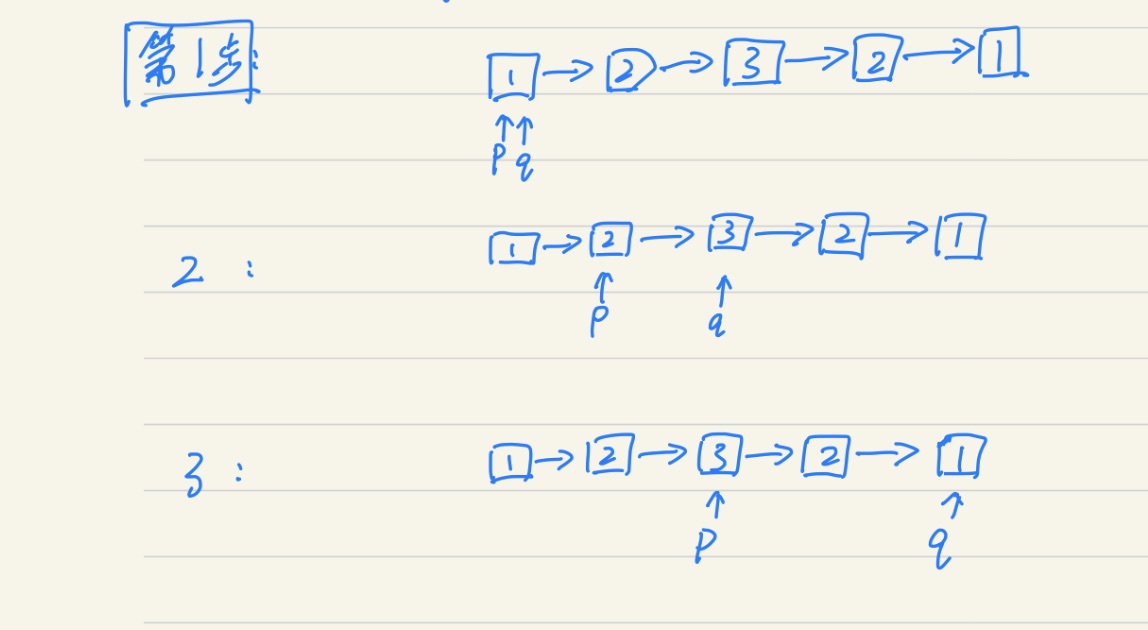 第1步: 1 → 2 → 3 → 2 → 1
↑ ↑
p q
2 : 1 → 2 → 3 → 2 → 1
↑ ↑
p q
3 : 1 → 2 → 3 → 2 → 1
↑ ↑
p q